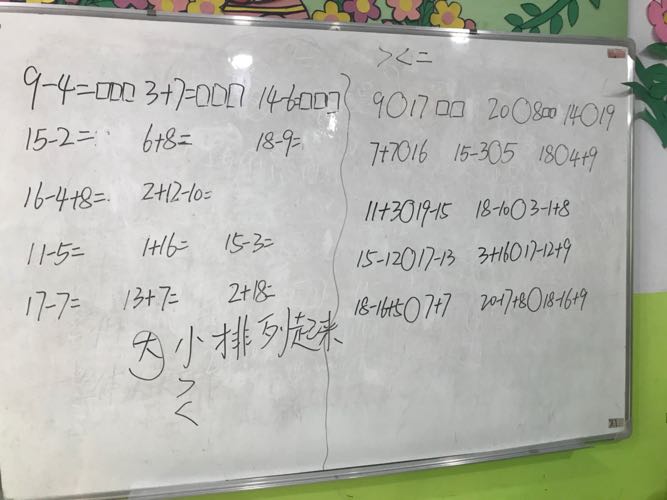 9-4=□□□ 3+7=□□□ 14-6□□□
15-2= 6+8= 18-9=
16-4+8= 2+12-10=
11-5= 1+16= 15-3=
17-7= 13+7= 2+18=
大小排列起来
>
<
><=
9○17□□ 20○8□□ 14○19
7+7○16 15-3○5 18○4+9
11+3○19-15 18-10○3-1+8
15-12○17-13 3+16○17-12+9
18-16+5○7+7 20-17+8○18-16+9